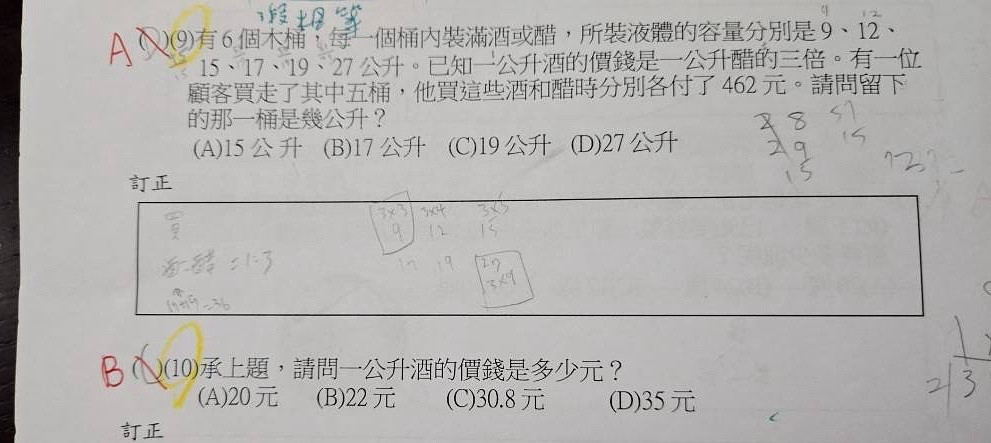 A ( )(9)有 6 個木桶，每一個桶內裝滿酒或醋，所裝液體的容量分別是 9、12、
15、17、19、27 公升。已知一公升酒的價錢是一公升醋的三倍。有一位
顧客買走了其中五桶，他買這些酒和醋時分別各付了 462 元。請問留下
的那一桶是幾公升？
(A)15 公升 (B)17 公升 (C)19 公升 (D)27 公升
訂正
買 3x3 3x4 3x5
9 12 15
=1:3 17 19 27
3x9
=36
B ( )(10)承上題，請問一公升酒的價錢是多少元？
(A)20 元 (B)22 元 (C)30.8 元 (D)35 元
訂正